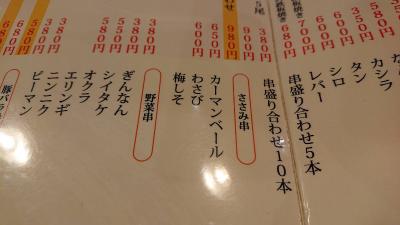 580円
350円
600円
鉄板焼き
680円
5尾
380円
980円
650円
600円
380円
380円
550円
580円
380円
カシラ
タン
シロ
レバー
串盛り合わせ5本
串盛り合わせ10本
ささみ串
カーマンベール
わさび
梅しそ
野菜串
ぎんなん
シイタケ
オクラ
エリンギ
ニンニク
ピーマン
豚バラ